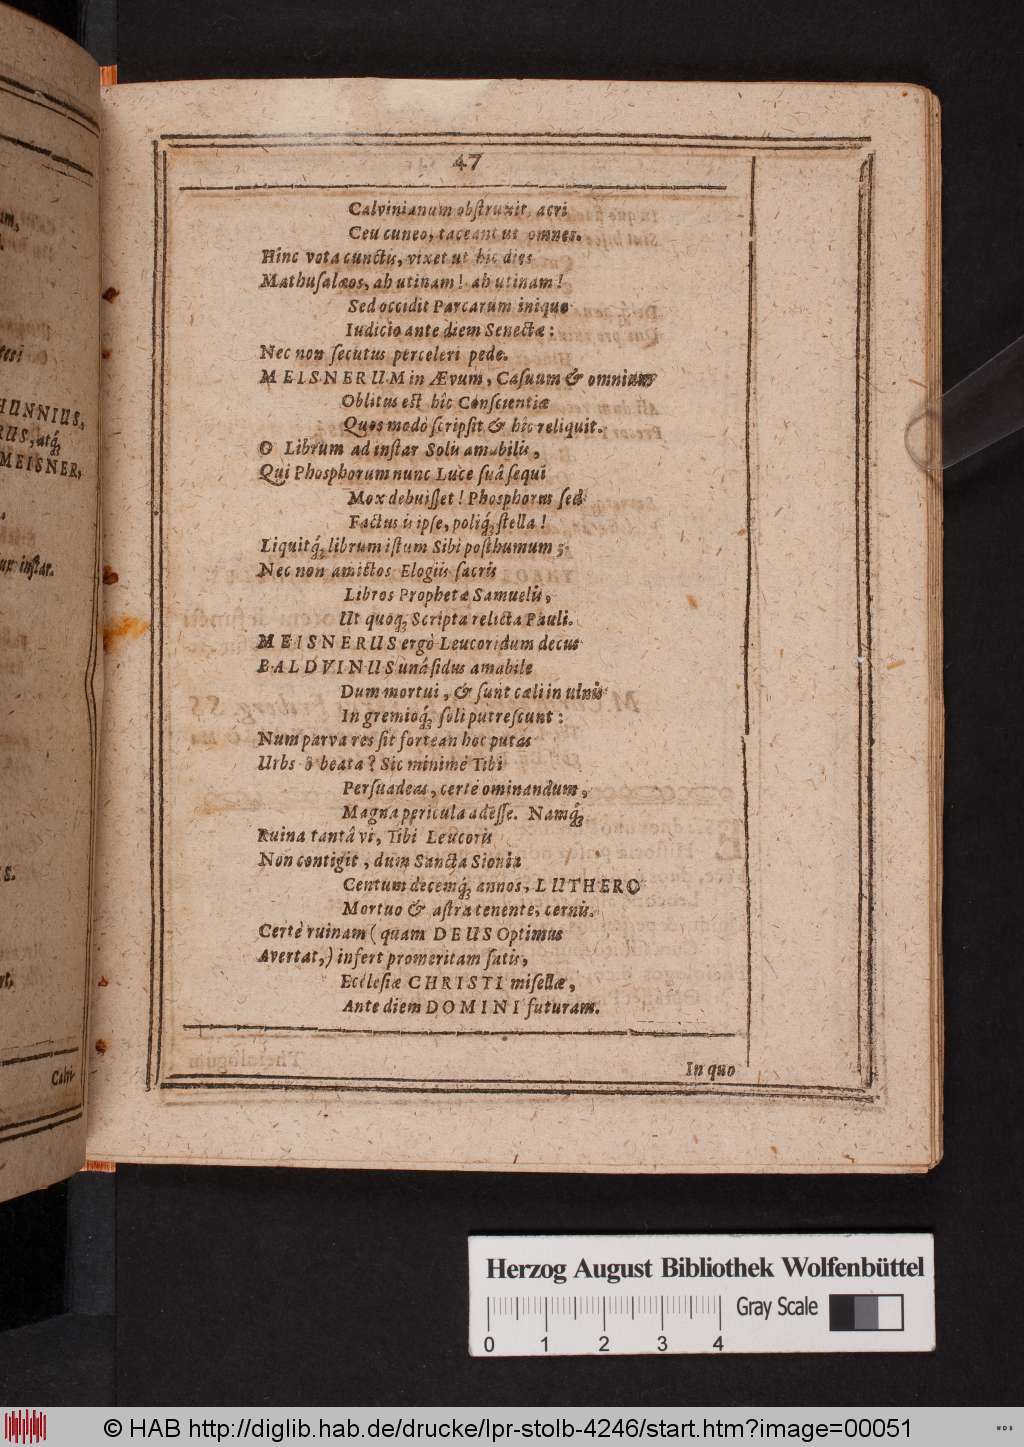 um,
HUNNIUS,
RUS, atq́;
MEISNER,
inſtar.
Calvi-
47
Calvinianum obſtruxit, acri
Ceu cuneo, taceant ut omnes.
Hinc vota cunctis, vixet ut hic dies
Mathuſalæos, ah utinam! ah utinam!
Sed occidit Parcarum iniquo
Iudicio ante diem Senectæ:
Nec non ſecutus perceleri pede.
MEISNERUM in Ævum, Caſuum & omnium
Oblitus eſt hîc Conſcientiæ
Quos modò ſcripſit & hîc reliquit.
O Librum ad inſtar Solis amabilis,
Qui Phosphorum nunc Luce ſuâ ſequi
Mox debuiſſet! Phosphorus ſed
Factus is ipſe, poliq́; ſtella!
Liquitq́; librum iſtum Sibi poſthumum;
Nec non amictos Elogiis ſacris
Libros Prophetæ Samuelis,
Ut quoq; Scripta relicta Pauli.
MEISNERUS ergò Leucoridum decus
BALDVINUS unâ ſidus amabile
Dum mortui, & ſunt cæli in ulnis
In gremioq́; ſoli putreſcunt:
Num parva res ſit fortean hoc putas
Urbs ô beata? Sic minimè Tibi
Perſuadeas, certè ominandum,
Magna pericula adeſſe. Namq́;
Ruina tantâ vi, Tibi Leucoris
Non contigit, dum Sancta Sionia
Centum decemq́; annos, LUTHERO
Mortuo & aſtra tenente, cernis.
Certè ruinam (quam DEUS Optimus
Avertat,) infert promeritam ſatis,
Eccleſiæ CHRISTI miſellæ,
Ante diem DOMINI futuram.
In quo
Herzog August Bibliothek Wolfenbüttel
Gray Scale
0 1 2 3 4
© HAB http://diglib.hab.de/drucke/lpr-stolb-4246/start.htm?image=00051